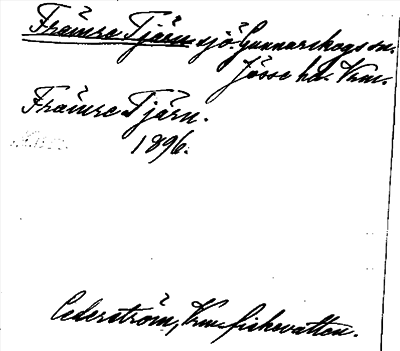 Främre Tjärn sjö. Gunnarskogs sn.
Jösse hd. Vrm.
Främre Tjärn.
1896.
Cederström, Vrm. fiskevatten.